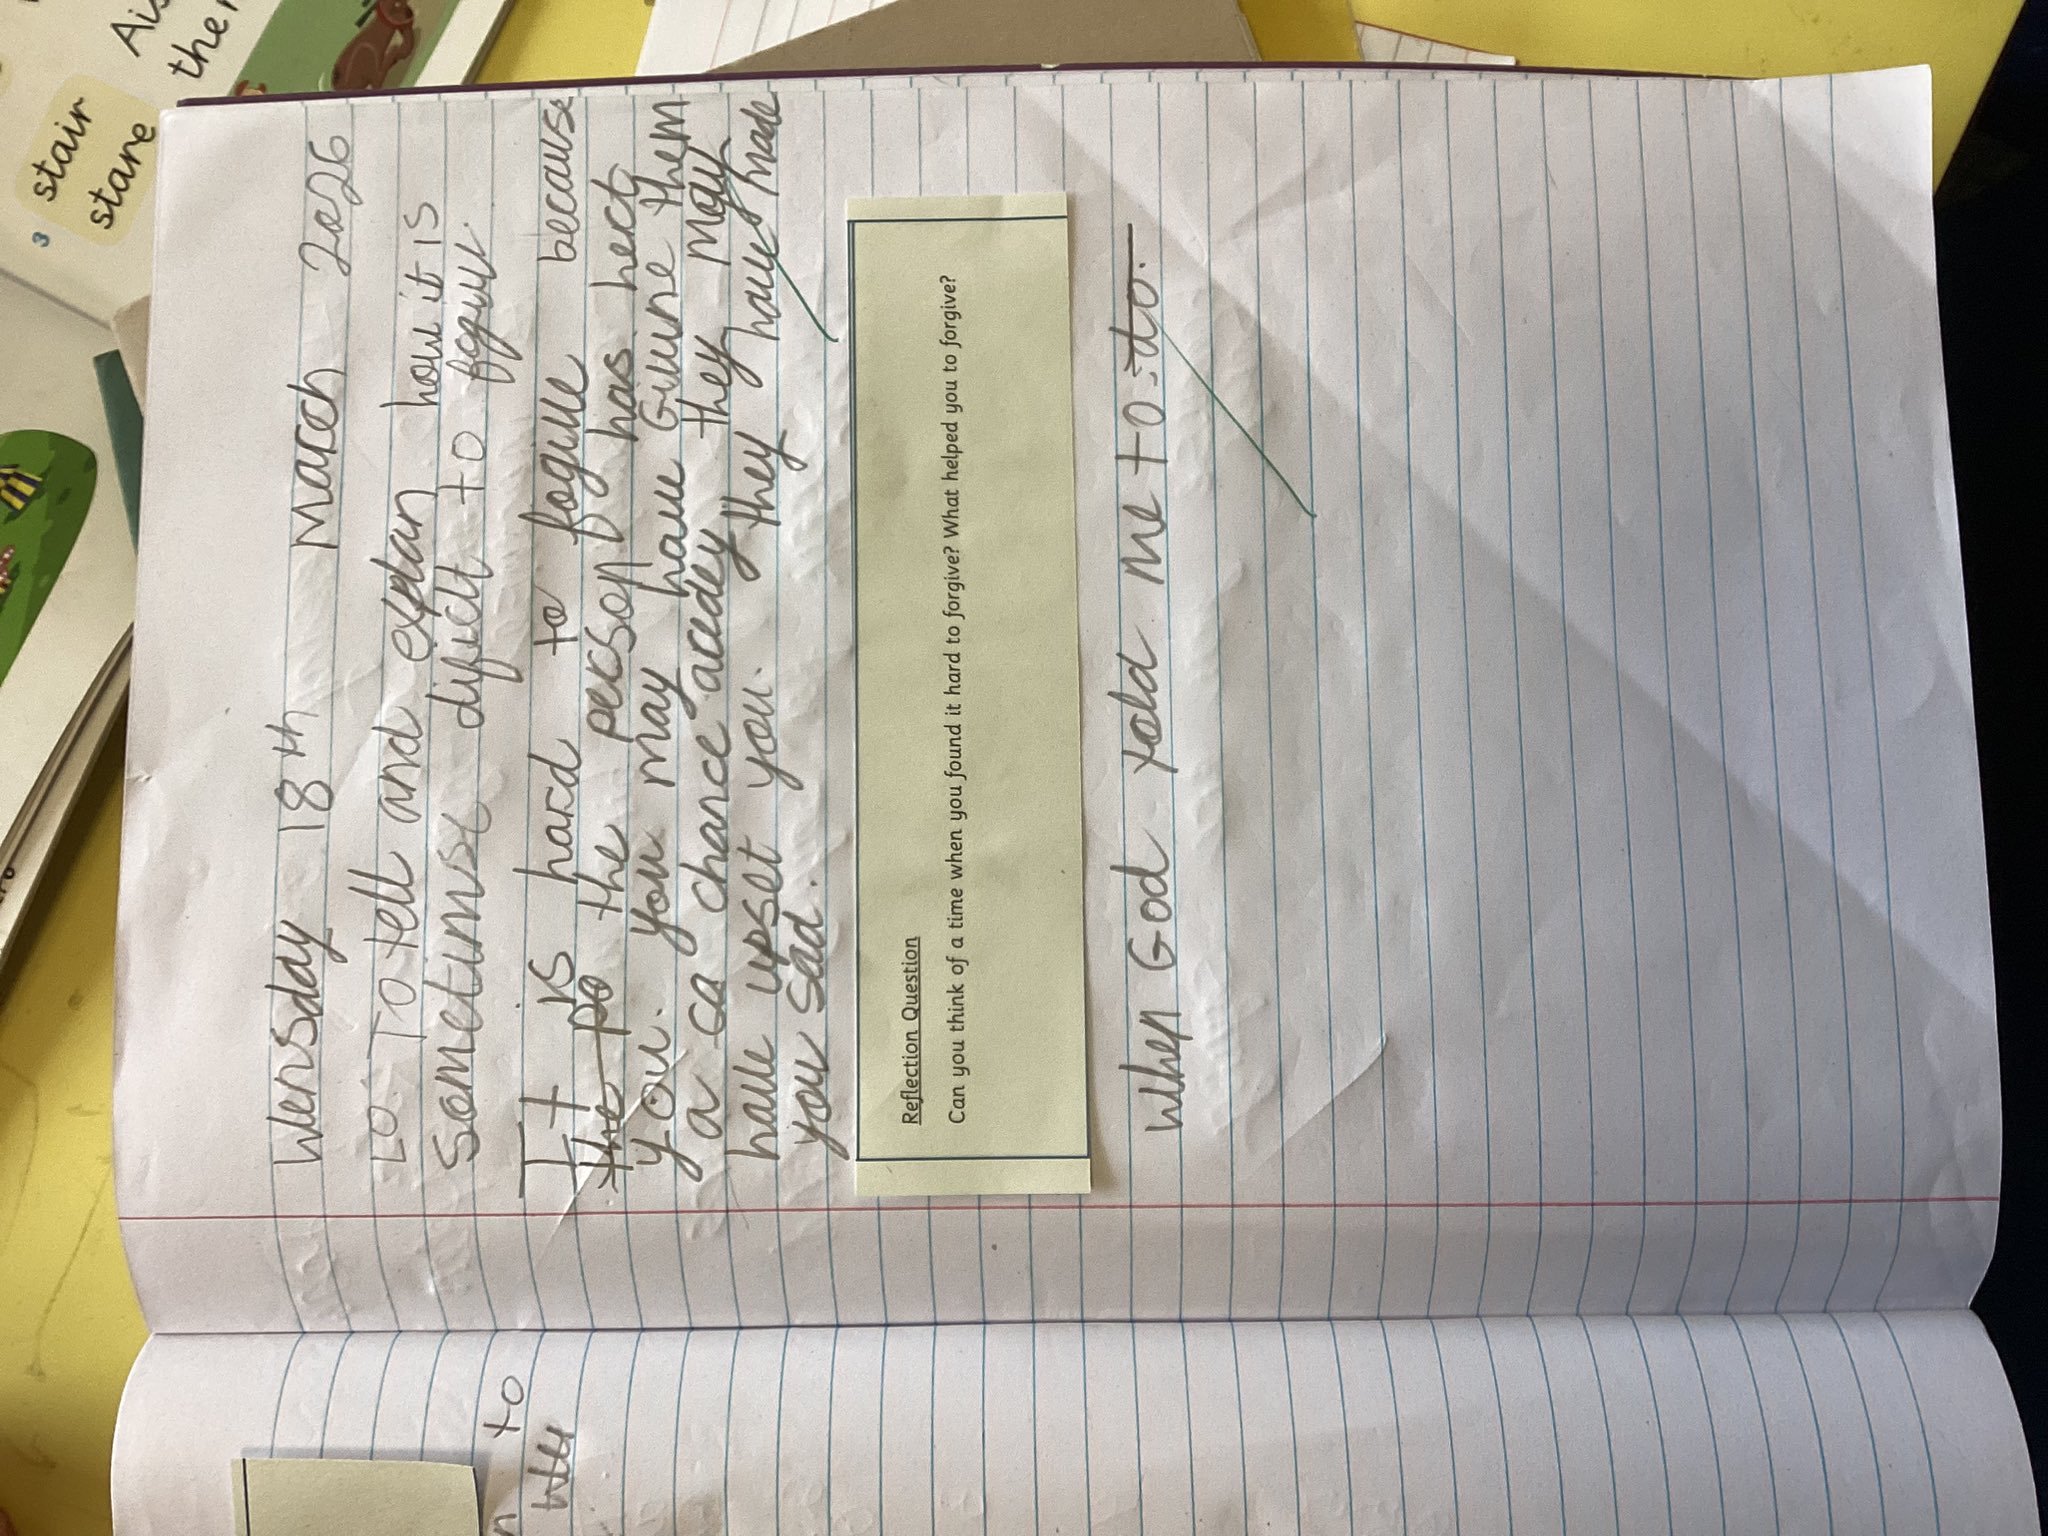 stair
stare
3
Wensday 18th March 2026
LO To tell and explan how it is
sometimse dificlt to
It is hard to fogive because
the po the person has hect
you. you may have Givune them
a ca chance accdey they may
have upset you. they have made
you sad.
Reflection Question
Can you think of a time when you found it hard to forgive? What helped you to forgive?
When God told me to do.
to